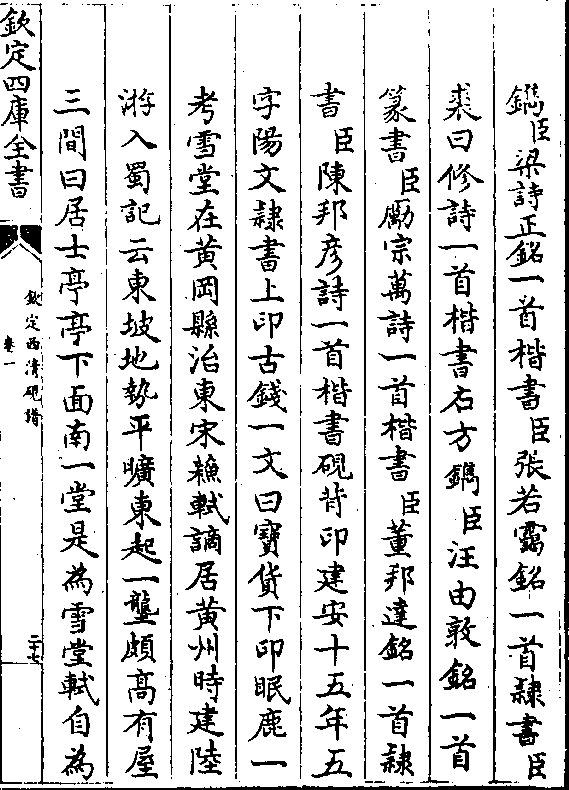 鐫臣梁詩正銘一首楷書臣張若靄銘一首隸書臣
裘曰修詩一首楷書右方鐫臣汪由敦銘一首
篆書臣勵宗萬詩一首楷書臣董邦達銘一首隸
書臣陳邦彦詩一首楷書硯背印建安十五年五
字陽文隷書上印古錢一文曰寶貨下印眠鹿一
考雪堂在黄岡縣治東宋蘓軾謫居黄州時建陸
游入蜀記云東坡地勢平曠東起一壟頗髙有屋
三間曰居士亭亭下面南一堂是為雪堂軾自為
欽定四庫全書
欽定西清硯譜
卷一
二十七